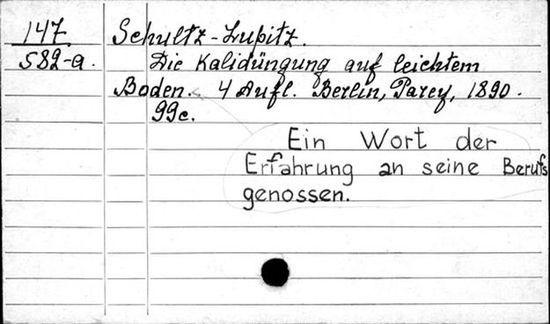 147
582-a.
Schultz-Lupitz.
Die Kalidüngung auf leichtem
Boden. 4 Aufl. Berlin, Parey, 1890.
99c.
Ein Wort der
Erfahrung an seine Berufs
genossen.